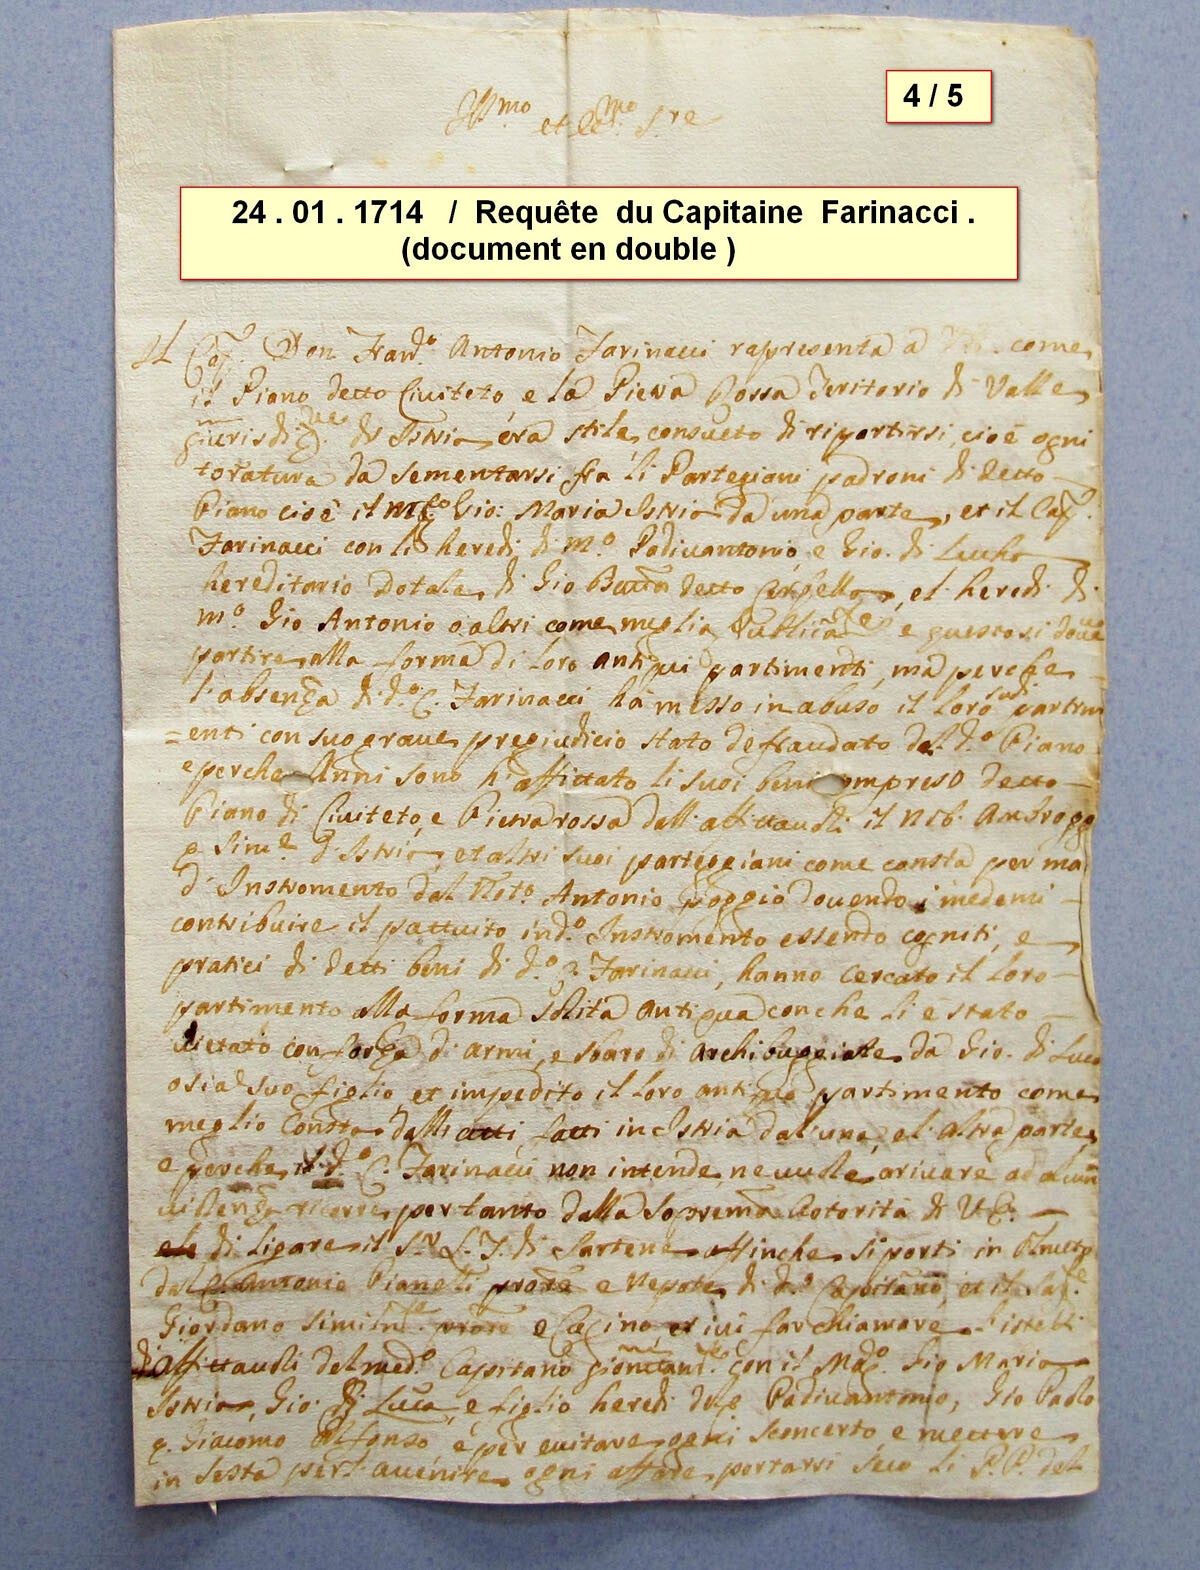 Ill.mo et Ecc.mo S.re
4 / 5
24 . 01 . 1714 / Requête du Capitaine Farinacci .
(document en double )
Il Cap. Don Fran.o Antonio Farinacci rapresenta a come
il Piano detto Civiteto e la Pietra Rossa Teritorio di Valle
giurisdi.ne de Istria era stile consueto di ripartirsi, cioè ogni
toratura da sementarsi fra li Partegiani padroni di detto
Piano cioè il M.co Gio: Maria Istria da una parte, et il Cap.
Farinacci con li heredi di m.o Padivantonio, e Gio. di Lucho
hereditario dotale di Gio Batta detto, el heredi di
m.o Gio Antonio o altri come meglio e questo si
partire alla forma di loro antiqui partimenti, ma perche
l'absenza di d.o C. Farinacci ha messo in abuso il loro sud.i partim
=enti con suo grave pregiudicio stato defraudato del d.o Piano
e perche Anni sono ha affittato li suoi beni compreso detto
Piano di Civiteto, e Pietra rossa dalli affittauoli il Nob. Ambrogg
q Sim.e d'Istria, et altri suoi parteggiani come consta per ma
d'Instromento dal Not.o Antonio Poggio dovendo i medemi
contribuire il pattuito in d.o Instromento essendo cogniti, e
pratici di detti beni di d.o C. Farinacci, hanno cercato il loro
partimento alla forma solita antiqua con che li è stato
vietato con forza di armi, e sbaro di Archibuggiate da Gio. di Luca
o sia suo figlio et impedito il loro antiquo partimento come
meglio Consta dalli atti fatti in Istria dal una, el altra parte
e perche il d.o C. Farinacci non intende, ne vuole arivare ad alcun
ricorre pertanto dalla Soprema Autorità di V.E.
di ligare il S.r L.T. di Sartene affinche si porti in Olmeto
dal C. Antonio Pianelli e Nepote di d.o Capitano, et il Cap.
Giordano simil.te e Cugino, et ivi far chiamare l'istessi
affittauoli del med.o Capitano con il Mag.o Gio Maria
Istria, Gio. di Luca, e figlio heredi del q Padivantonio, Gio Paolo
q. Giacomo Alfonso, e per evitare ogni sconcerto e mettere
in sesta per l'avenire ogni affare portarsi seco li P.P. del